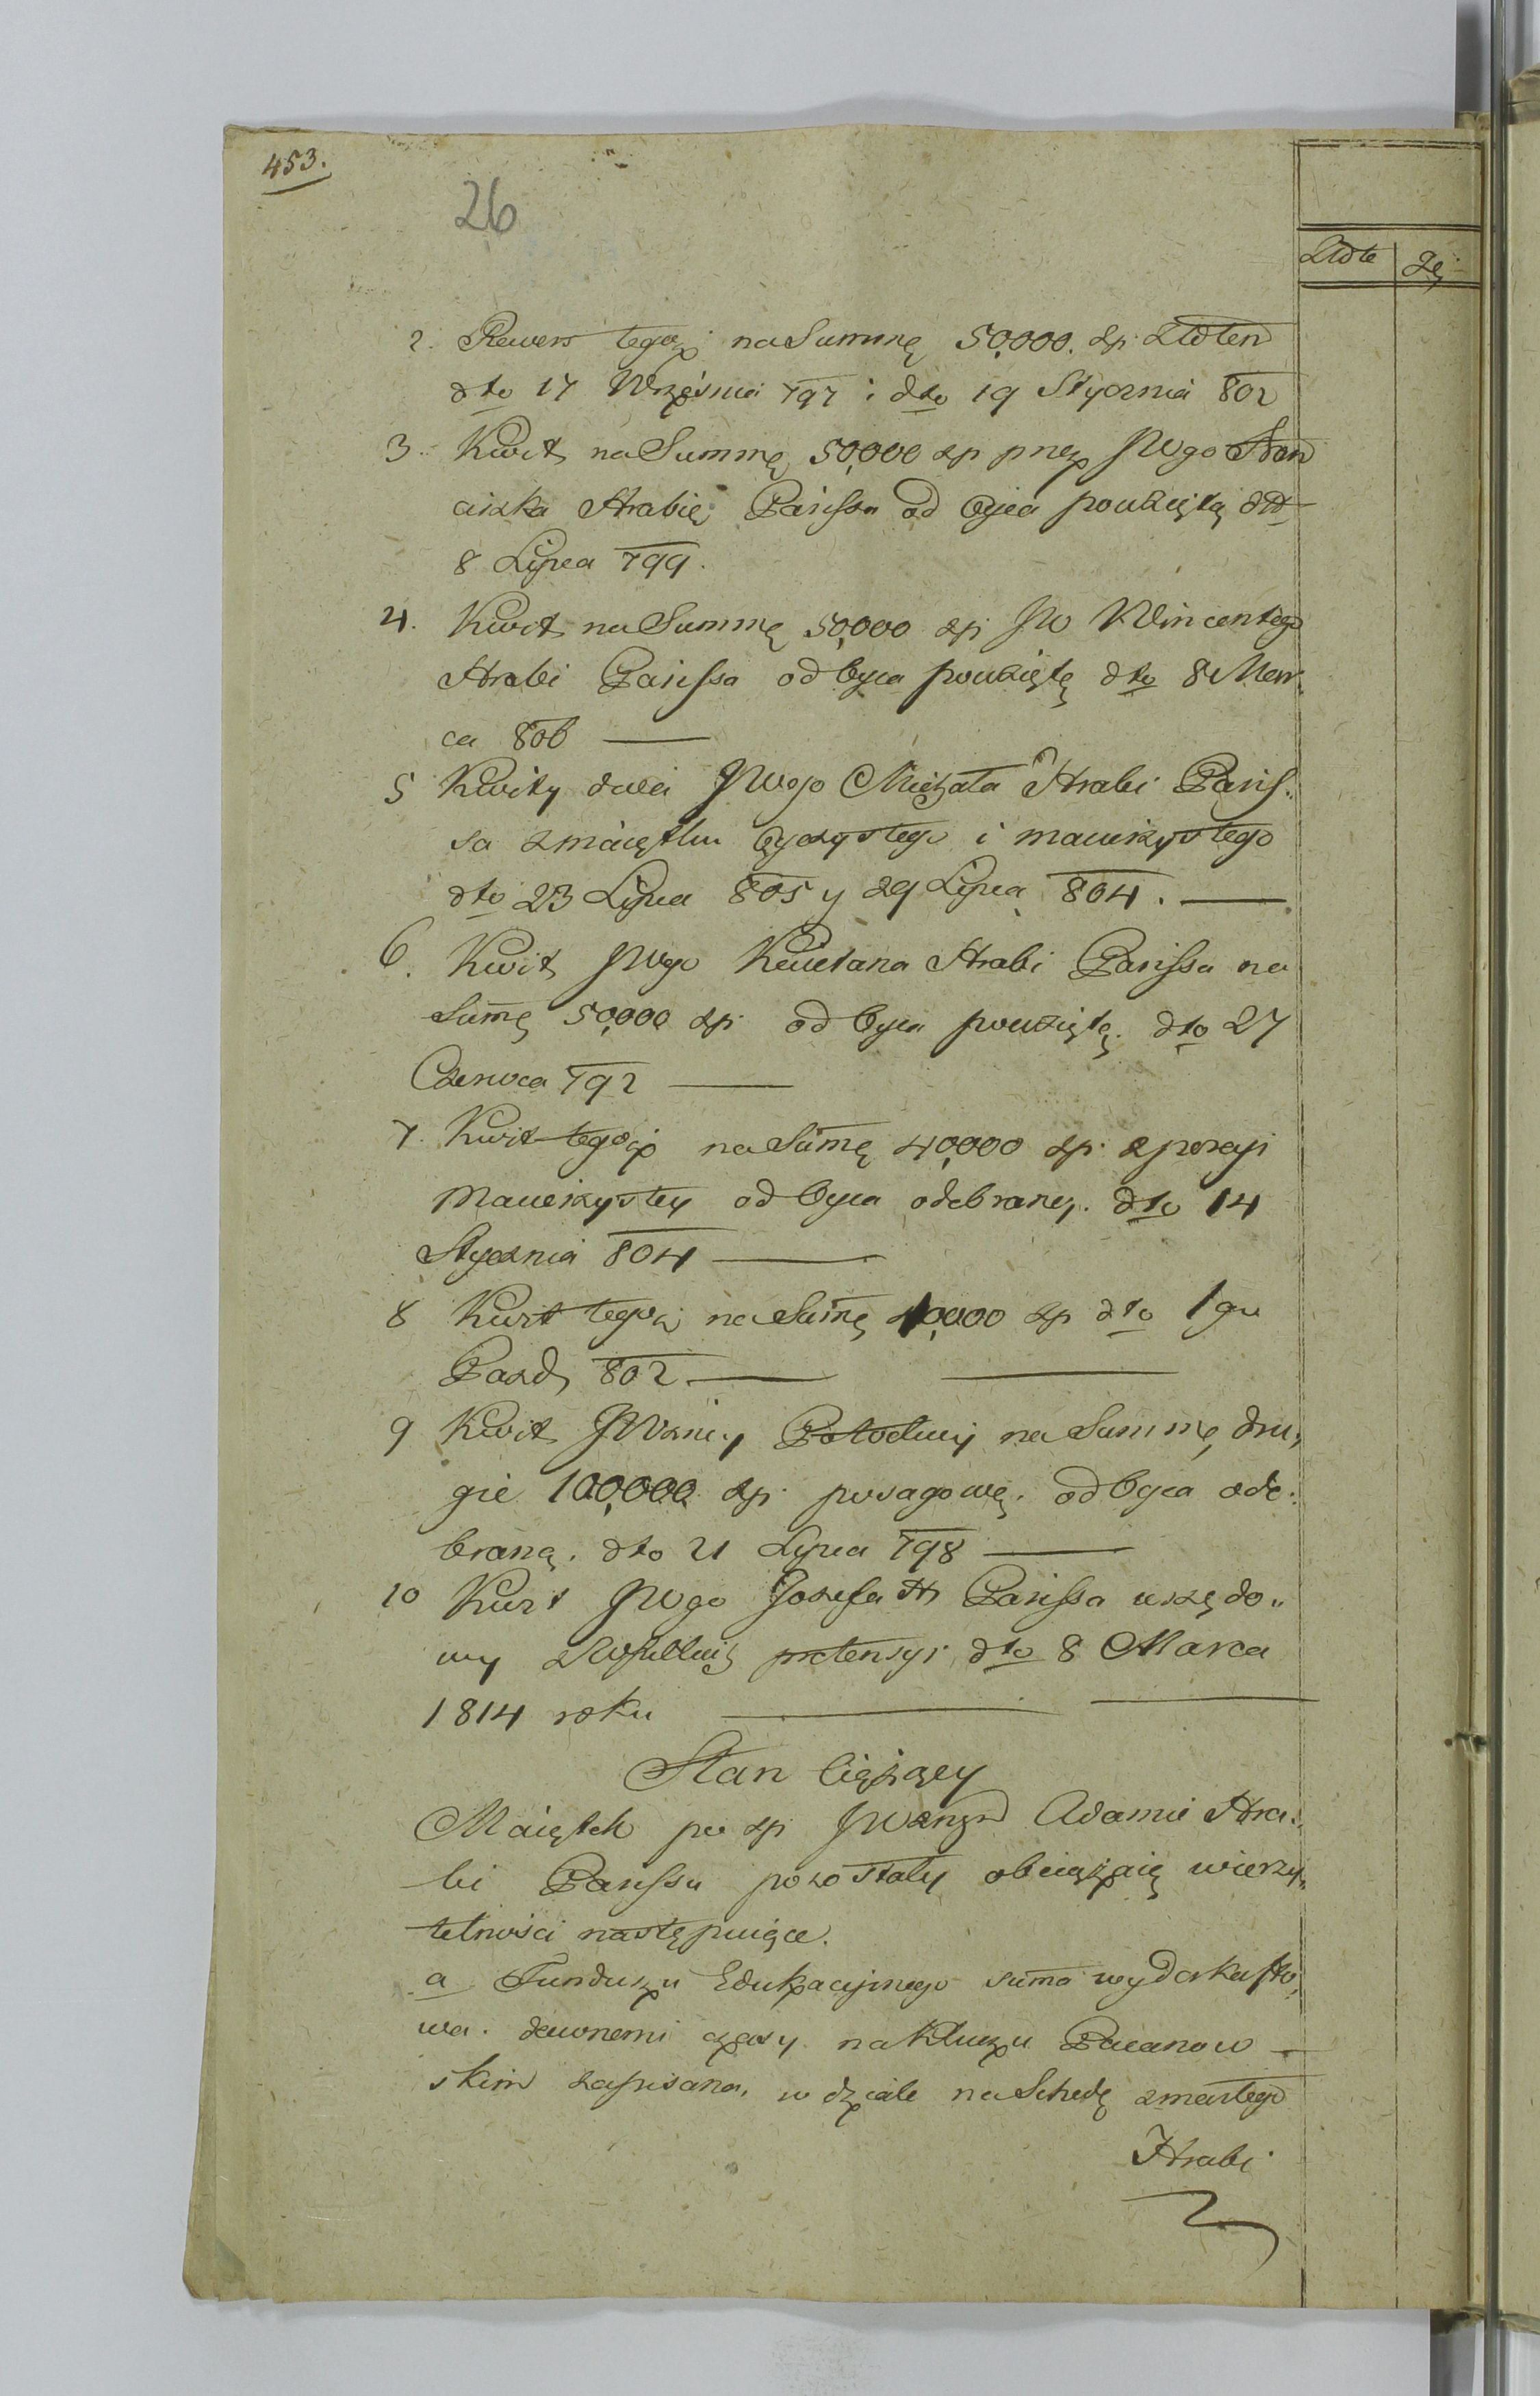 453.
26
Zldte gr
2. Rewers tegoż na Summę 50,000. zp Zldten
dto 17 Września 797 i dto 19 Stycznia 802
3. Kwit na Summę 50,000 zp przez JWgo Fran
ciszka Hrabię Parissa od Oyca powziętą dto
8 Lipca 799.
4. Kwit na Summę 50,000 zp JW Wincentego
Hrabi Parissa od Oyca powziętę dto 8 Mar,
ca 806
5 Kwity dwa JWgo Michała Hrabi Paris,
sa z maiątku Oyczystego i macierzystego
dto 23 Lipca 805 y 29 Lipca 804.
6. Kwit JWgo Kaietana Hrabi Parissa na
Sumę 50,000 zp od Oyca powziętę. dto 27
Czerwca 792
7. Kwit tegoż na Sumę 40,000 zp z
macierzystey od Oyca odebraney. dto 14
Stycznia 804
8 Kwit tegoż na Sumę 10,000 zp dto 1go
Pazd, 802
9 Kwit JWżniey Potockiey na Summę dru,
gie 100,000 zp posagowę. od Oyca ode.
braną. dto 21 Lipca 798
10 Kwit JWgo Jozefa Hr Parissa urzędo,,
wy z Wszelkich pretensyi dto 8 Marca
1814 roku
Stan Ciężący
Maiątek po sp JWżnym Adamie Hra,
bi Parissu pozostały obciążaią wierzy,
telności następuiące.
a Funduszu Edukacyjnego suma wyderkafto,
wa. dawnemi czasy na Kluczu Pacanow
skim zapisana, w dziale na Schedę zmarłego
Hrabi